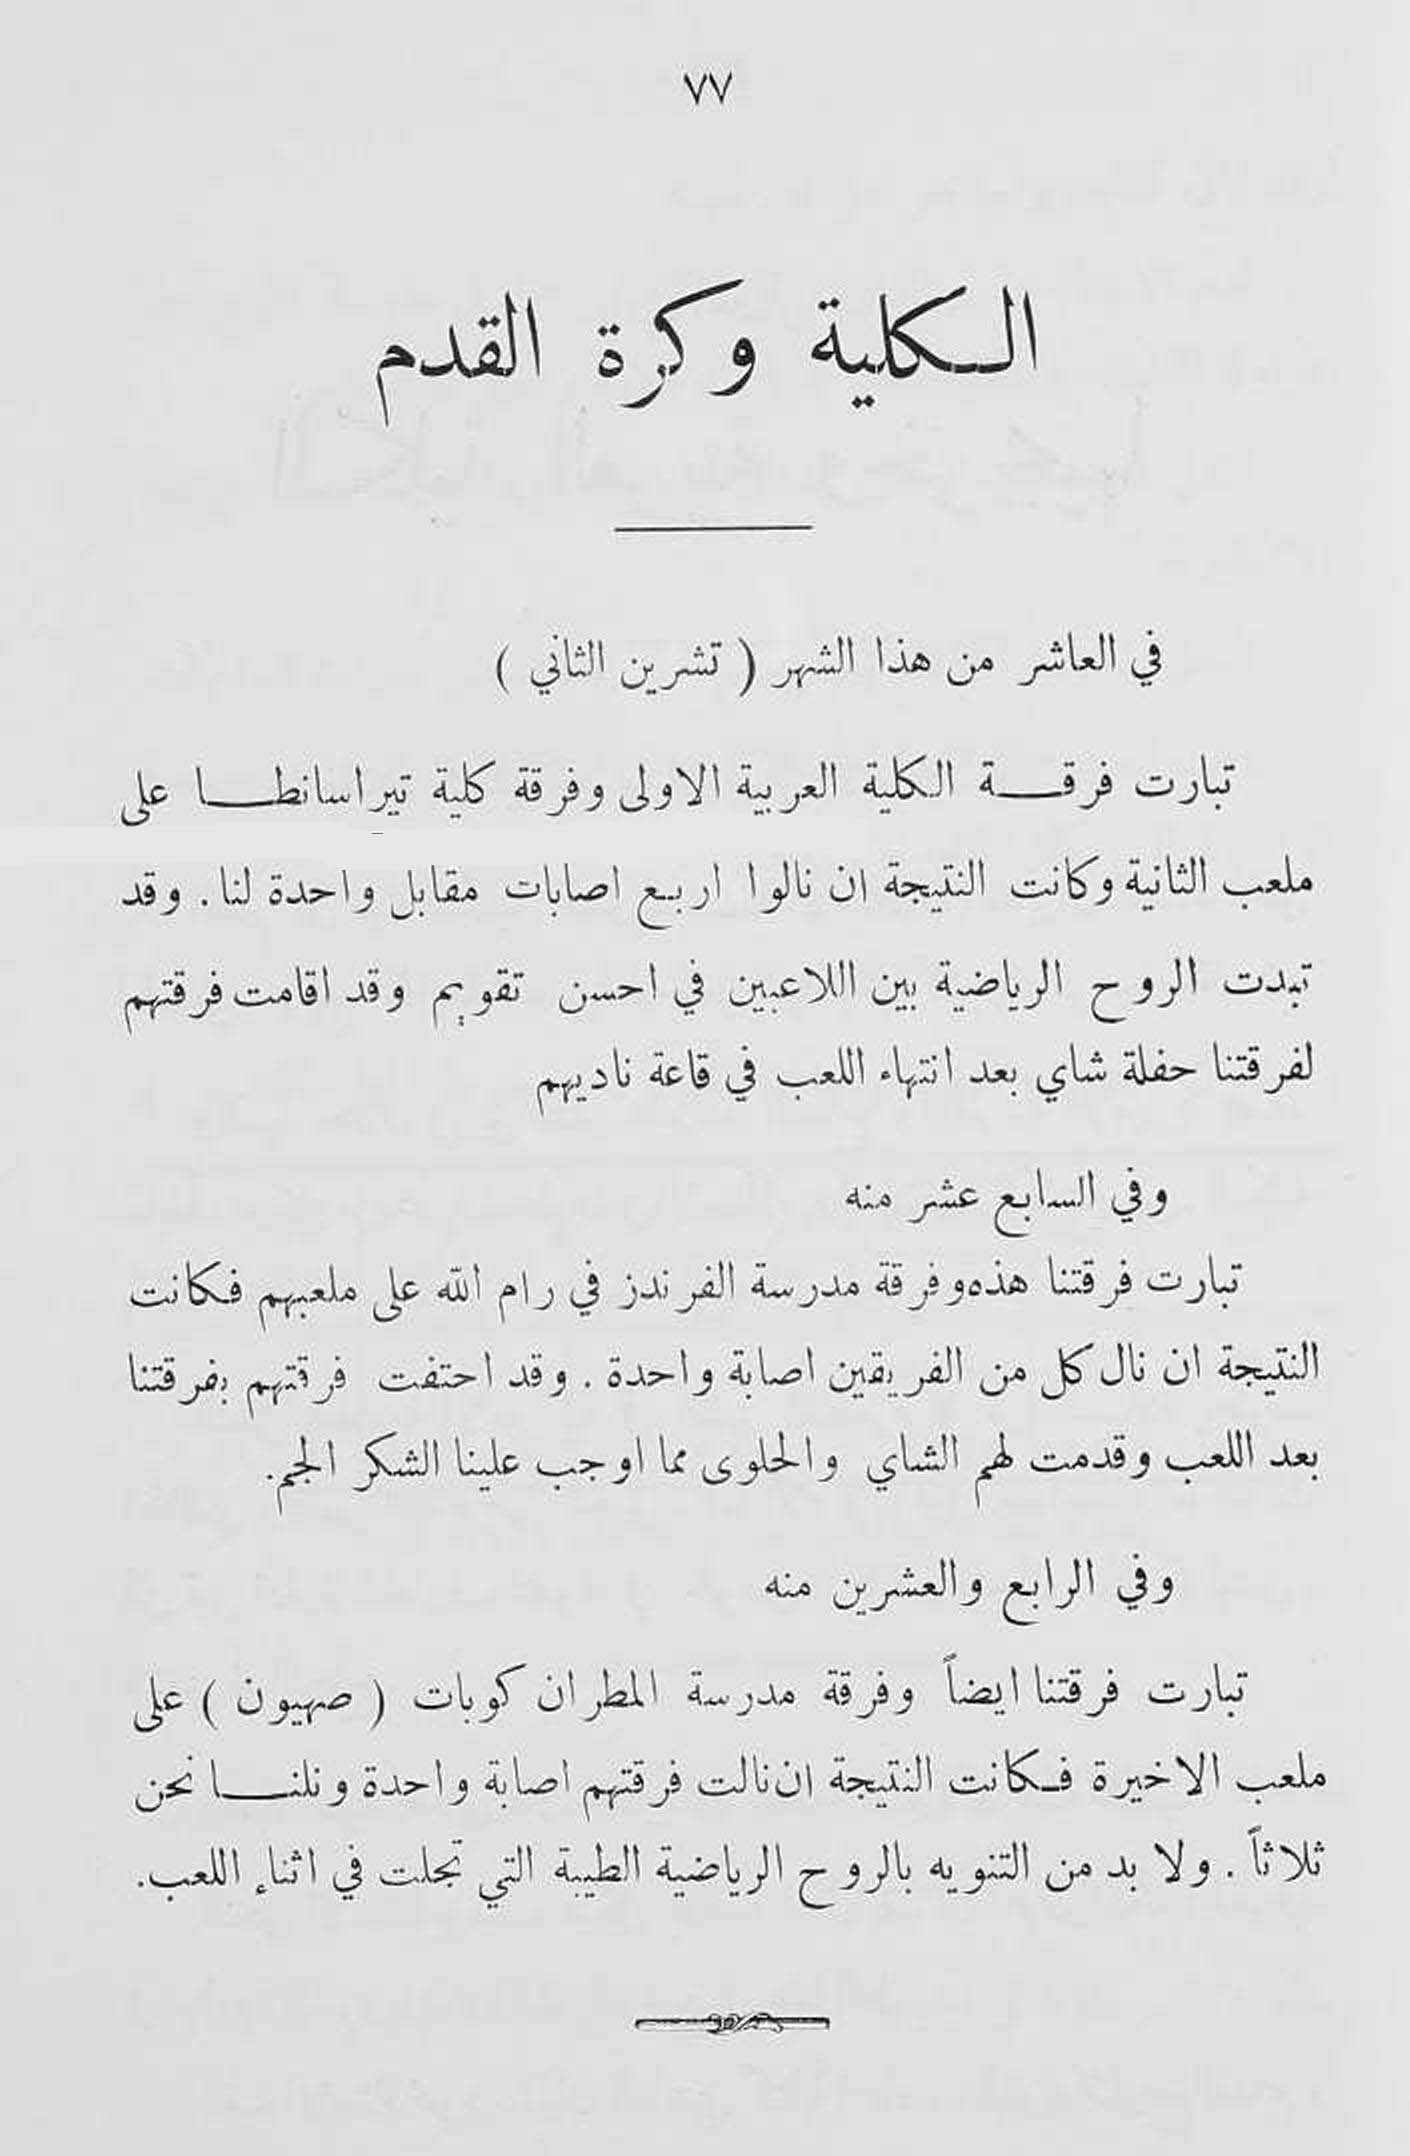 ٧٧
الكلية وكرة القدم
في العاشر من هذا الشهر ( تشرين الثاني )
تبارت فرقة الكلية العربية الاولى وفرقة كلية تيراسانطا على
ملعب الثانية وكانت النتيجة ان نالوا اربع اصابات مقابل واحدة لنا . وقد
تبدت الروح الرياضية بين اللاعبين في احسن تقويم وقد اقامت فرقتهم
لفرقتنا حفلة شاي بعد انتهاء اللعب في قاعة ناديهم
وفي السابع عشر منه
تبارت فرقتنا هذه وفرقة مدرسة الفرندز في رام الله على ملعبهم فكانت
النتيجة ان نال كل من الفريقين اصابة واحدة . وقد احتفت فرقتهم بفرقتنا
بعد اللعب وقدمت لهم الشاي والحلوى مما اوجب علينا الشكر الجم.
وفي الرابع والعشرين منه
تبارت فرقتنا ايضاً وفرقة مدرسة المطران كوبات ( صهيون ) على
ملعب الاخيرة فكانت النتيجة ان نالت فرقتهم اصابة واحدة ونلنا نحن
ثلاثاً . ولا بد من التنويه بالروح الرياضية الطيبة التي تجلت في اثناء اللعب.